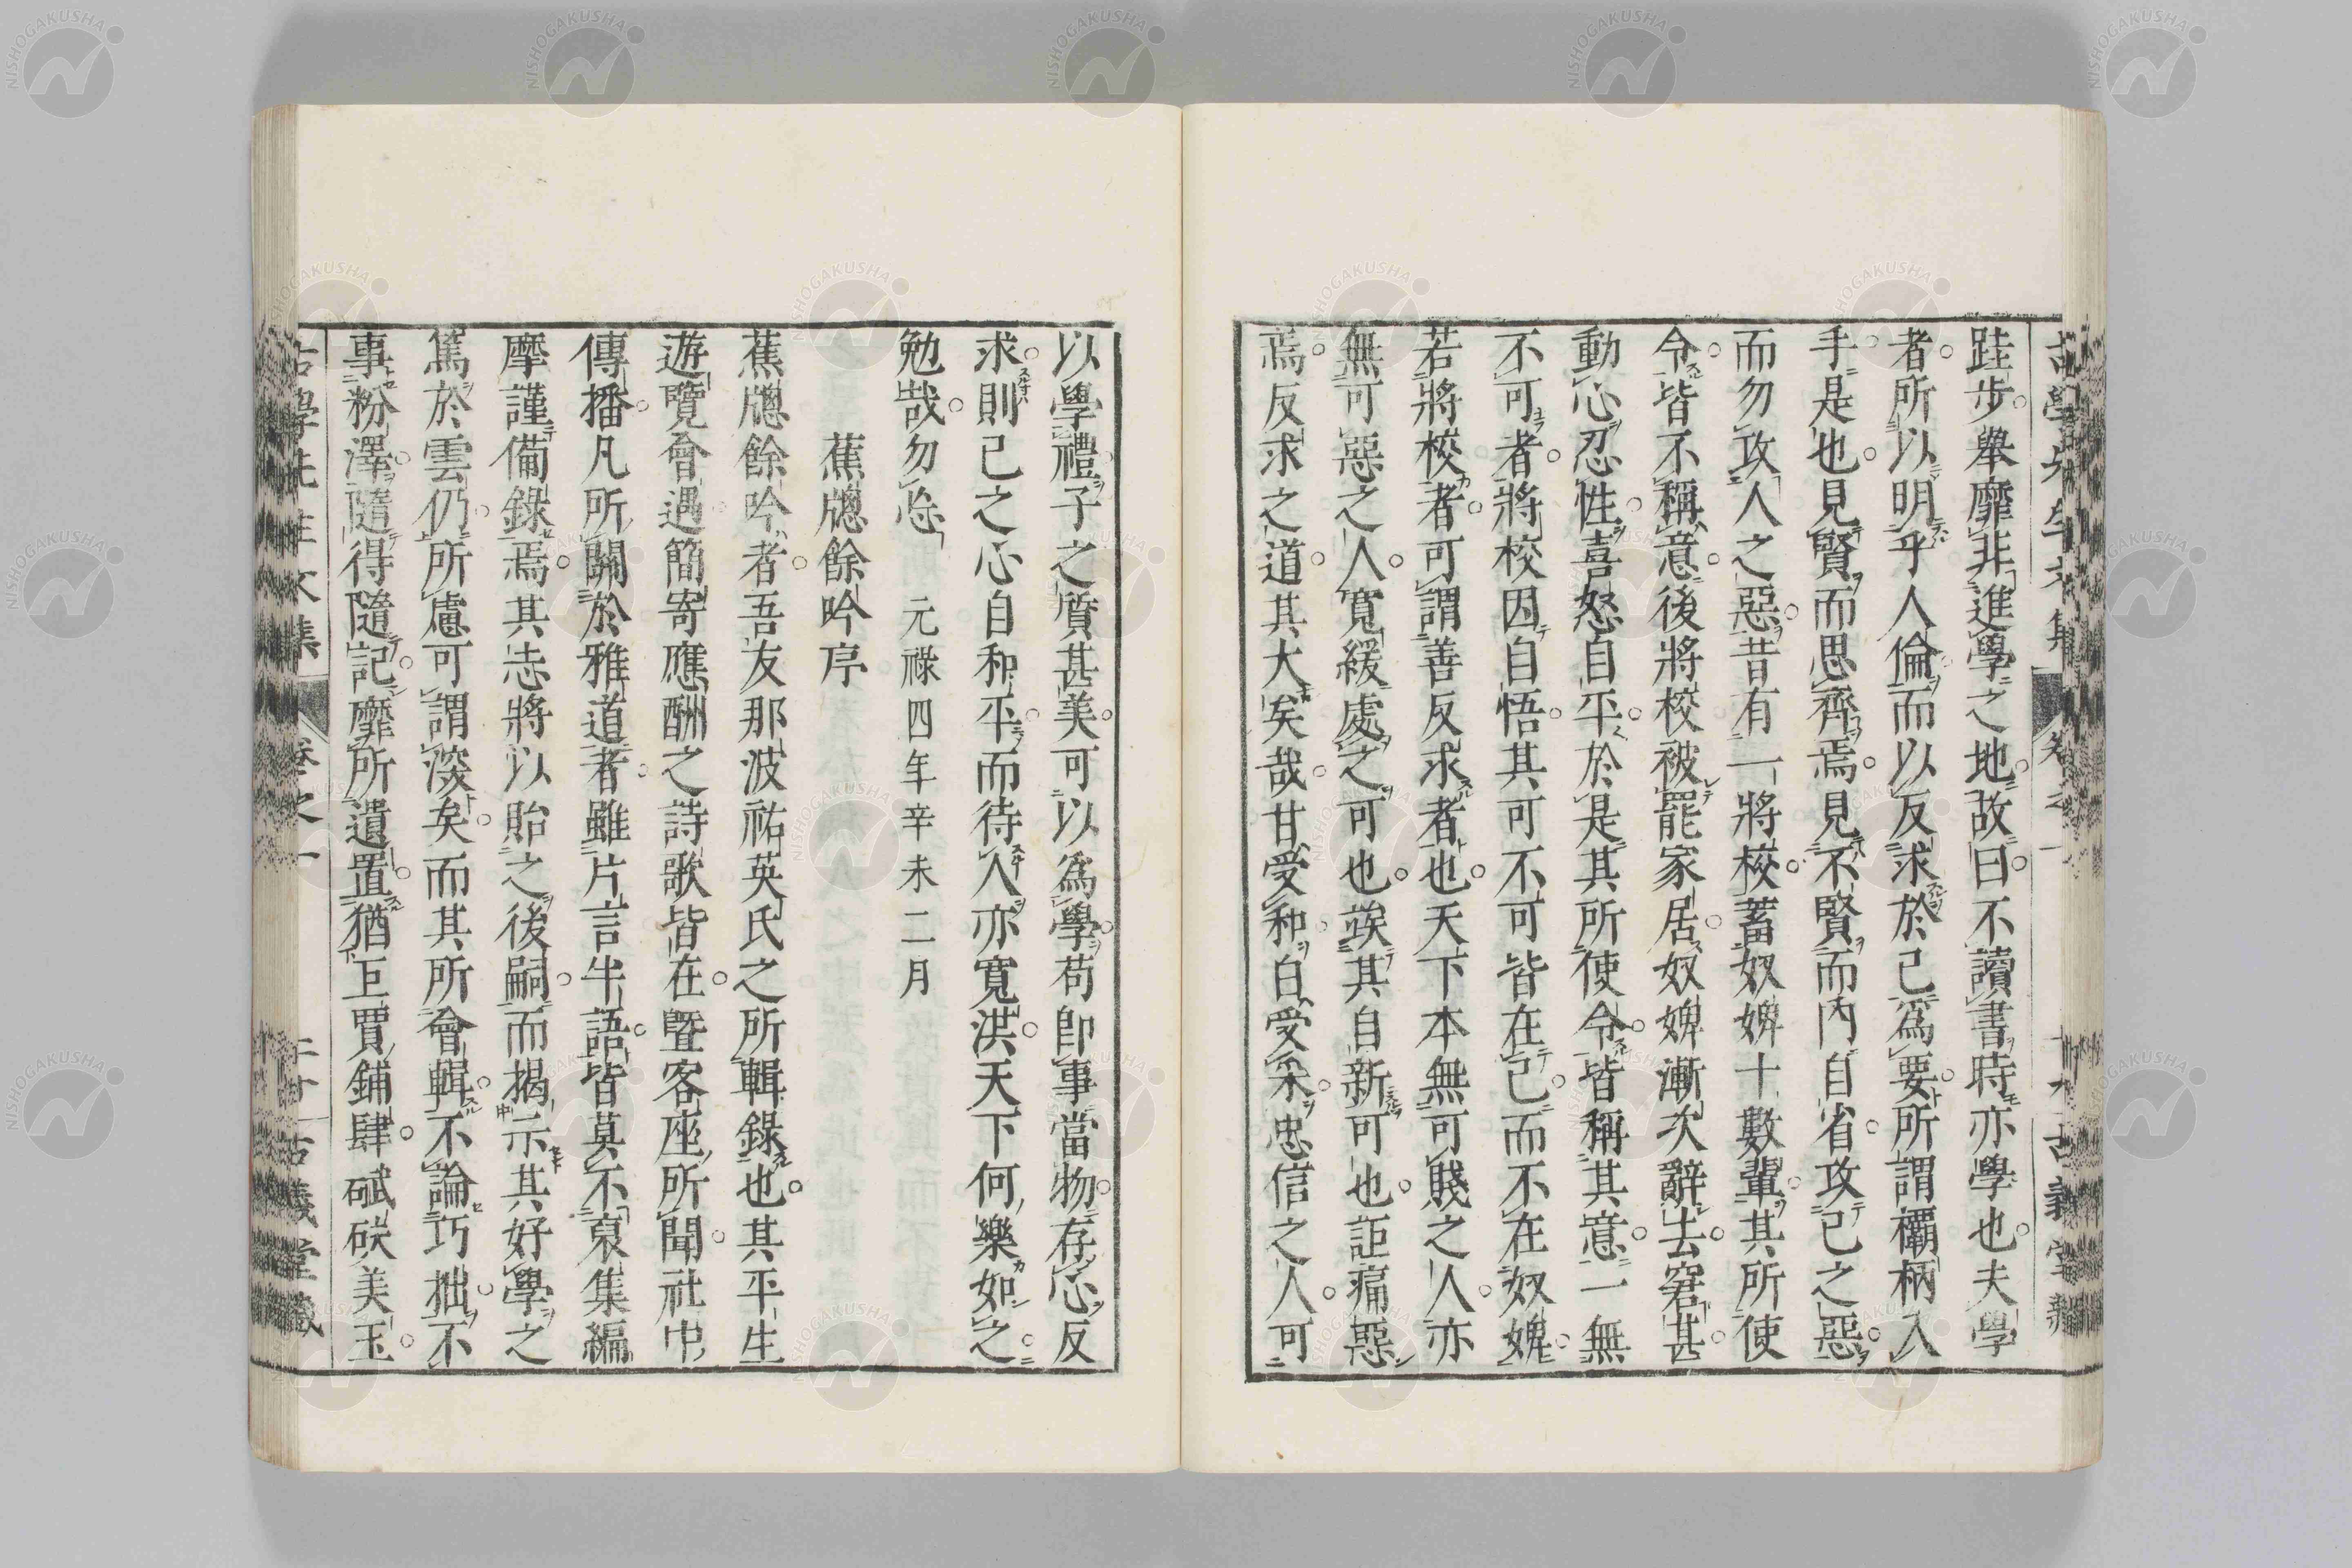 跬步擧靡非進學之地故曰不讀書時亦學也夫學
者所以明乎人倫而以反求於己爲要所謂欛柄入
手是也見賢而思齊焉見不賢而內自省攻己之惡
而勿攻人之惡昔有一將校蓄奴婢十數輩其所使
令皆不稱意後將校被罷家居奴婢漸次辭去窘甚
動心忍性喜怒自平於是其所使令皆稱其意一無
不可者將校因自悟其可不可皆在己而不在奴婢
若將校者可謂善反求者也天下本無可賤之人亦
無可惡之人寬緩處之可也竢其自新可也詎痛惡
焉反求之道其大矣哉甘受和白受采忠信之人可
以學禮子之質甚美可以爲學苟卽事當物存心反
求則己之心自和平而待人亦寬洪天下何樂如之
勉哉勿怠　元祿四年辛未二月
蕉牕餘吟序
蕉牕餘吟者吾友那波祐英氏之所輯錄也其平生
遊覽會遇簡寄應酬之詩歌皆在曁客座所聞社中
傳播凡所關於雅道者雖片言半語皆莫不裒集編
摩謹備錄焉其志將以貽之後嗣而揭示其好學之
篤於雲仍所慮可謂深矣而其所會輯不論巧拙不
事粉澤隨得隨記靡所遺置猶巨賈鋪肆碔砆美玉
古學先生文集　卷之一　古義堂藏